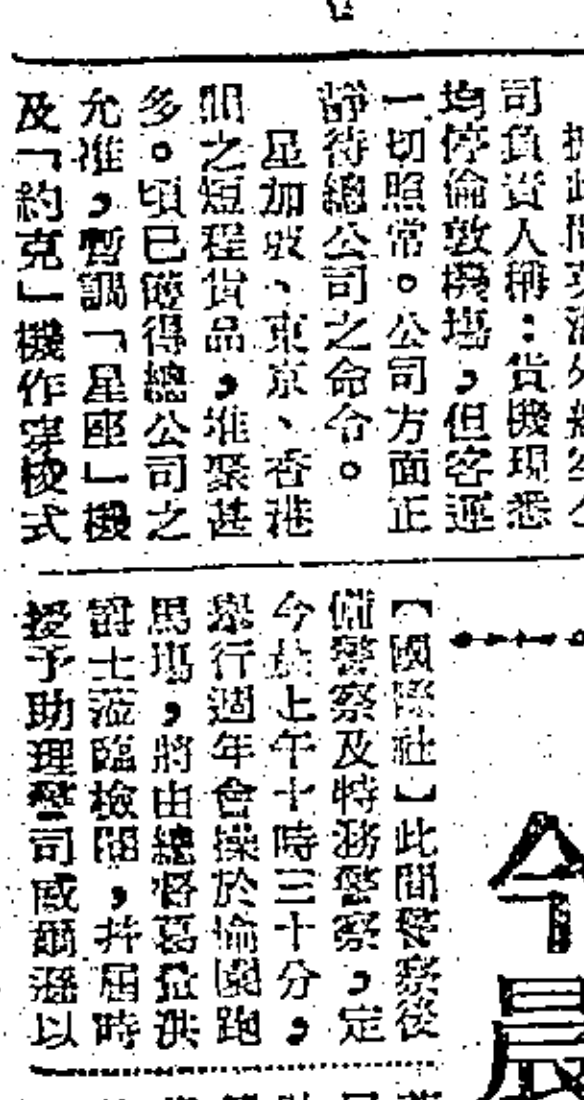 司負責人稱：貨機現悉
均停倫敦機場，但客運
一切照常。公司方面正
靜待總公司之命令。
星加坡、東京、香港
間之短程貨品，堆聚甚
多。頃已獲得總公司之
允准，暫調「星座」機
及「約克」機作穿梭式
今晨
【國際社】此間警察後
備警察及特務警察，定
今日上午十時三十分，
舉行週年會操於愉園跑
馬場，將由總督葛量洪
爵士蒞臨檢閱，并屆時
授予助理警司威爾遜以